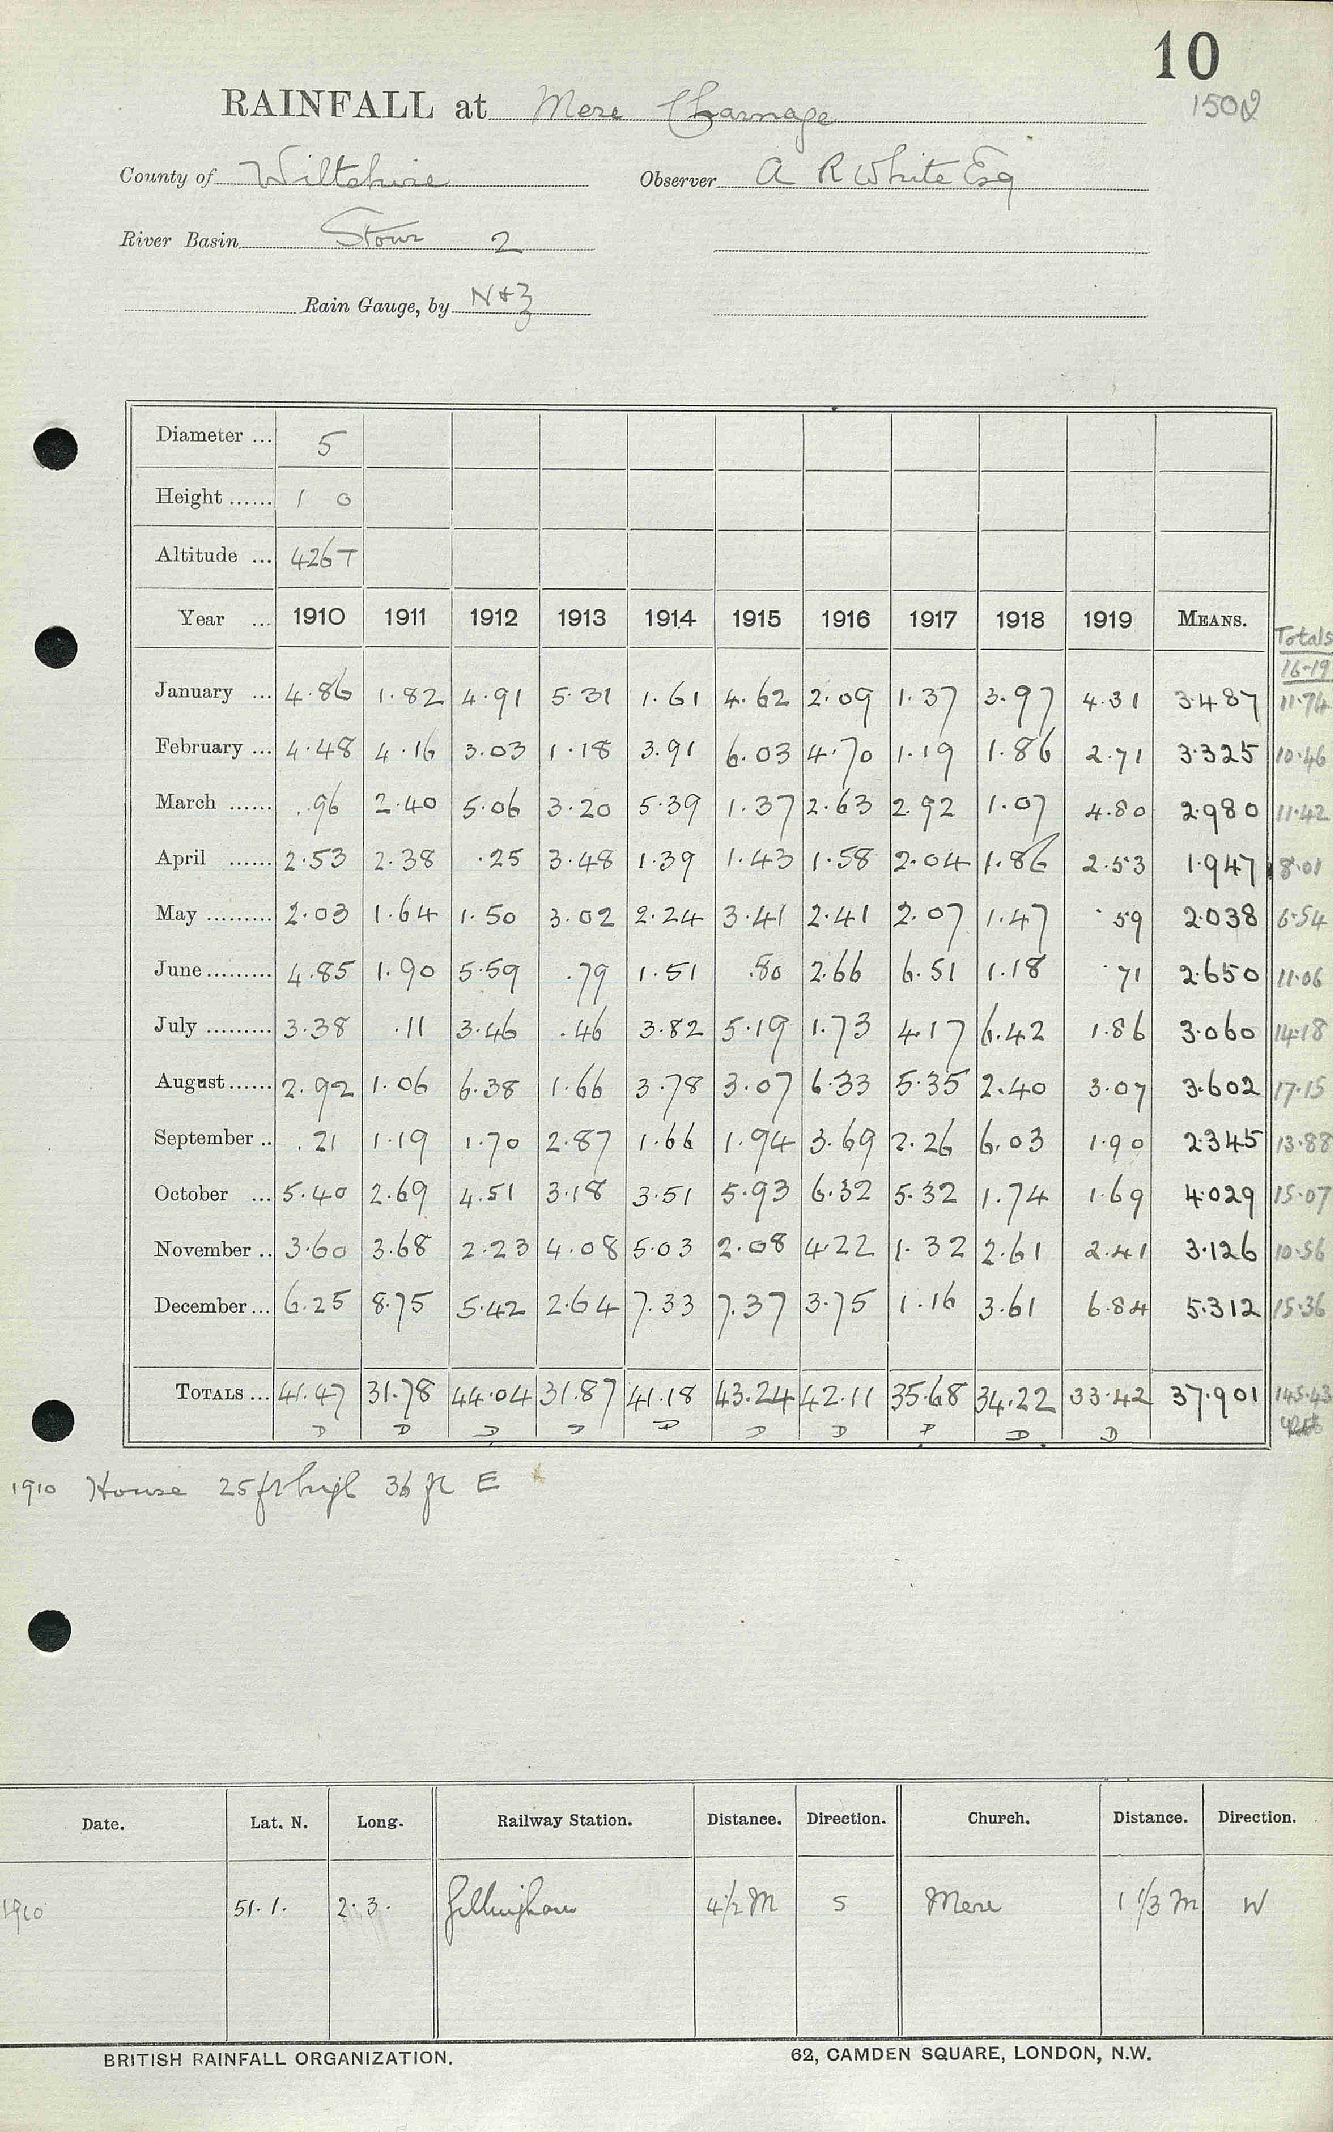 10
RAINFALL at Mere Charnage
150
County of Wiltshire Observer A R White Esq
River Basin Stour 2
Rain Gauge, by N+Z
Diameter ... 5
Height ...... 1 0
Altitude ... 426 T
Year ... 1910 1911 1912 1913 1914 1915 1916 1917 1918 1919 MEANS. Totals 16-19
January ... 4.86 1.82 4.91 5.31 1.61 4.62 2.09 1.37 3.97 4.31 3.487 11.74
February ... 4.48 4.16 3.03 1.18 3.91 6.03 4.70 1.19 1.86 2.71 3.325 10.46
March ...... .96 2.40 5.06 3.20 5.39 1.37 2.63 2.92 1.07 4.80 2.980 11.42
April ...... 2.53 2.38 .25 3.48 1.39 1.43 1.58 2.04 1.86 2.53 1.947 8.01
May ......... 2.03 1.64 1.50 3.02 2.24 3.41 2.41 2.07 1.47 .59 2.038 6.54
June ......... 4.85 1.90 5.59 .79 1.51 .80 2.66 6.51 1.18 .71 2.650 11.06
July ......... 3.38 .11 3.46 .46 3.82 5.19 1.73 4.17 6.42 1.86 3.060 14.18
August ...... 2.92 1.06 6.38 1.66 3.78 3.07 6.33 5.35 2.40 3.07 3.602 17.15
September .. .21 1.19 1.70 2.87 1.66 1.94 3.69 2.26 6.03 1.90 2.345 13.88
October ... 5.40 2.69 4.51 3.18 3.51 5.93 6.32 5.32 1.74 1.69 4.029 15.07
November .. 3.60 3.68 2.23 4.08 5.03 2.08 4.22 1.32 2.61 2.41 3.126 10.56
December ... 6.25 8.75 5.42 2.64 7.33 7.37 3.75 1.16 3.61 6.84 5.312 15.36
TOTALS ... 41.47 31.78 44.04 31.87 41.18 43.24 42.11 35.68 34.22 33.42 37.901 145.43
D D D D D D D D D D
1910 House 25 ft high 36 ft E
Date. Lat. N. Long. Railway Station. Distance. Direction. Church. Distance. Direction.
1910 51.1. 2.3. Gillingham 4½ M S Mere 1 1/3 M W
BRITISH RAINFALL ORGANIZATION. 62, CAMDEN SQUARE, LONDON, N.W.